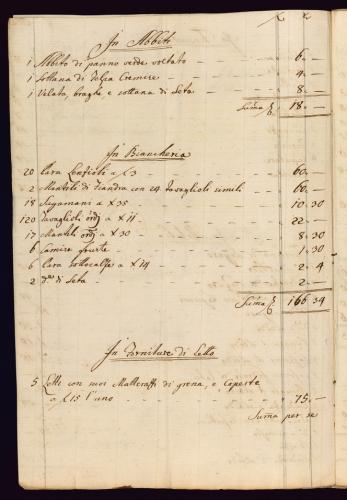 In Abiti
1 Abito di panno verde voltato — 6. —
1 Sottana di Felpa Cremese — 4. —
1 Velata, braghe e sottana di Seta — 8. —
Suma 18. —
In Biancheria
20 Para Lenzioli a £3 — 60. —
2 Mantili di Fiandra con 24 tavaglioli simili — 60. —
18 Sugamani a X 35 — 10. 30
120 Tavaglioli ordj a X 11 — 22. —
17 Mantili ordj a X 30 — 8. 30
6 Camise fruste — 1. 30
6 Para sottocalze a X 24 — 2. 4
2 di Seta — 2. —
Suma 166. 34
In Forniture di Letto
5 Letti con suoi Matteraffi di grena, e Coperte
a £15 l'uno — 75. —
Suma per se